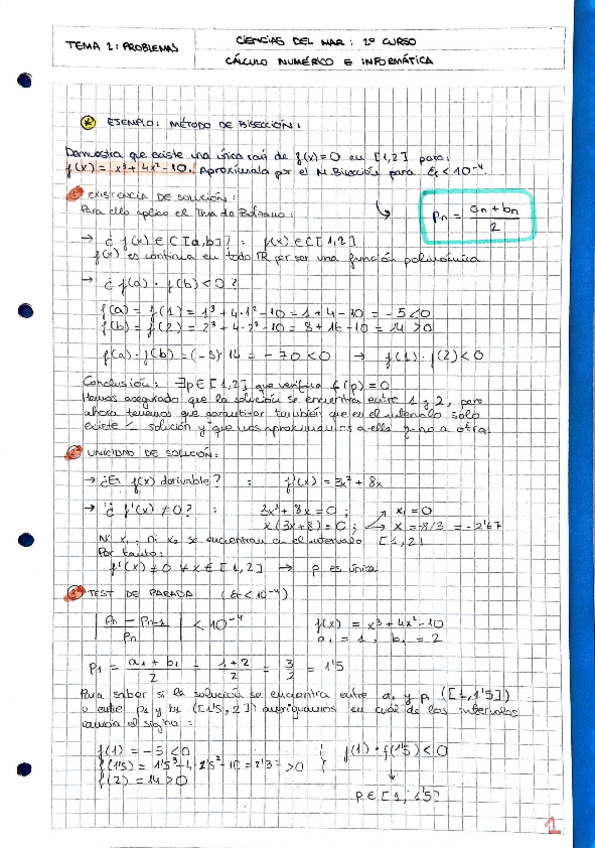 TEMA 2: PROBLEMAS
CIENCIAS DEL MAR: 2º CURSO
CÁLCULO NUMÉRICO E INFORMÁTICA
* EJEMPLO: MÉTODO DE BISECCIÓN:
Demostra que existe una única raíz de f(x)=0 en [1,2] para:
f(x) = x³+4x²-10. Aproxímala por el M. Bisección para εr<10⁻⁴.
1 EXISTENCIA DE SOLUCIÓN:
Para ello aplico el Tma de Bolzano:
pn = (an + bn)/2
→ ¿ f(x) ∈ C[a,b]? : f(x) ∈ C[1,2]
f(x) es continua en todo ℝ por ser una función polinómica
→ ¿ f(a) · f(b) < 0 ?
f(a) = f(1) = 1³+4·1²-10 = 1+4-10 = -5<0
f(b) = f(2) = 2³+4·2²-10 = 8+16-10 = 14>0
f(a)·f(b) = (-5)·14 = -70<0 → f(1)·f(2)<0
Conclusión: ∃p∈[1,2] que verifica f(p)=0
Hemos asegurado que la solución se encuentra entre 1 y 2, pero
ahora tenemos que garantizar también que en el intervalo solo
existe 1 solución y que nos aproximamos a ella y no a otra.
2 UNICIDAD DE SOLUCIÓN:
→ ¿Es f(x) derivable? : f'(x) = 3x² + 8x
→ ¿ f'(x) ≠ 0? : 3x²+8x=0; x₁=0
x(3x+8)=0; x=-8/3=-2'67
Ni x₁ ni x₂ se encuentran en el intervalo [1,2]
Por tanto:
f'(x) ≠ 0 ∀x∈[1,2] → p es única
3 TEST DE PARADA (εr<10⁻⁴)
|(pn - pn-1)/pn| < 10⁻⁴
f(x) = x³+4x²-10
a₁=1, b₁=2
p₁ = (a₁+b₁)/2 = (1+2)/2 = 3/2 = 1'5
Para saber si la solución se encuentra entre a₁ y p₁ ([1,1'5])
o entre p₁ y b₁ ([1'5,2]) averiguamos en cuál de los intervalos
cambia el signo:
f(1) = -5<0
f(1'5) = 1'5³+4·1'5²-10=2'3>0
f(2) = 14>0
f(1)·f(1'5)<0
p∈[1,1'5]
1